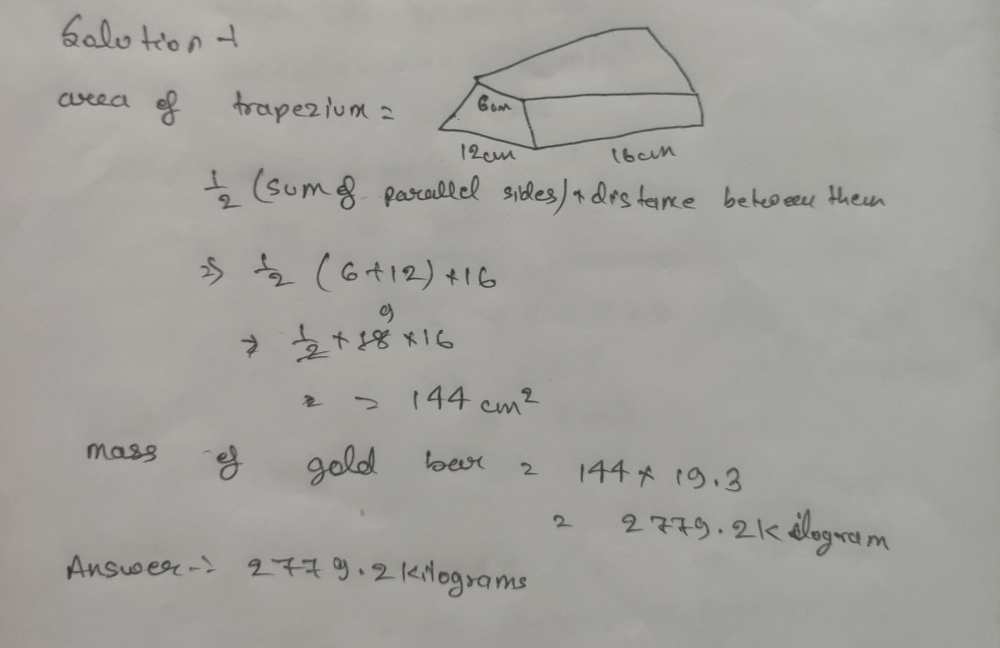 Solution -
area of trapezium =
6cm
12cm
16cm
1/2 (sum of parallel sides) * distance between them
=> 1/2 (6+12) * 16
9
=> 1/2 * 18 * 16
= = 144 cm²
mass of gold bar = 144 * 19.3
= 2779.2 kilogram
Answer -: 2779.2 kilograms